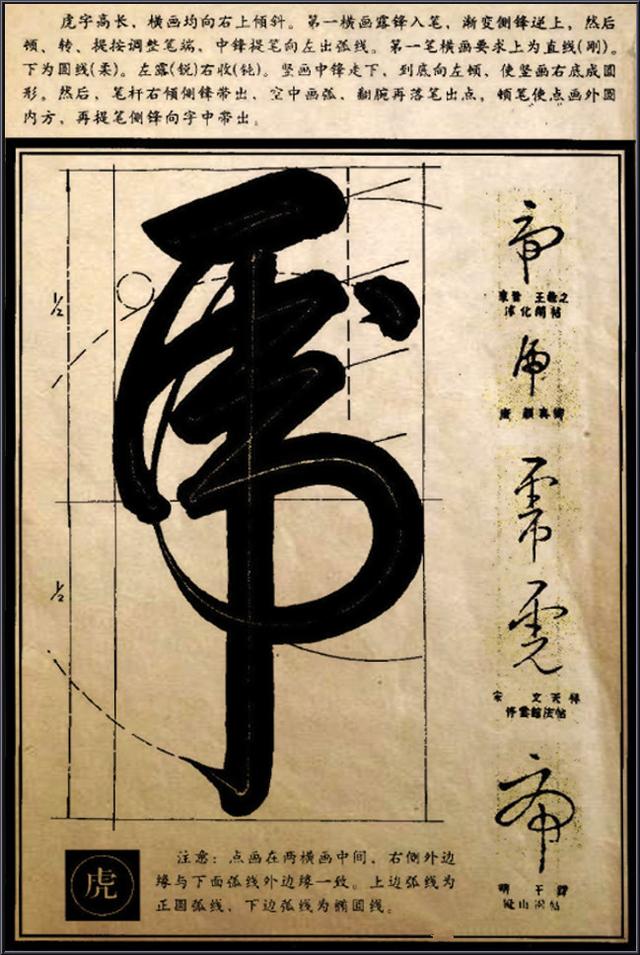 虎字高长，横画均向右上倾斜。第一横画露锋入笔，渐变侧锋逆上，然后
顿、转、提按调整笔端，中锋提笔向左出弧线。第一笔横画要求上为直线(刚)。
下为圆线(柔)。左露(锐)右收(钝)。竖画中锋走下，到底向左顿、使竖画右底成圆
形。然后、笔杆右倾侧锋带出、空中画弧、翻腕再落笔出点，顿笔使点画外圆
内方，再提笔侧锋向字中带出。
虎
½
½
东晋 王羲之
淳化阁帖
虎
唐 颜真卿
虎
虎
宋 文天祥
停云馆法帖
虎
明
山 帖
虎
注意：点画在两横画中间，右侧外边
缘与下面弧线外边缘一致。上边弧线为
正圆弧线、下边弧线为椭圆线。